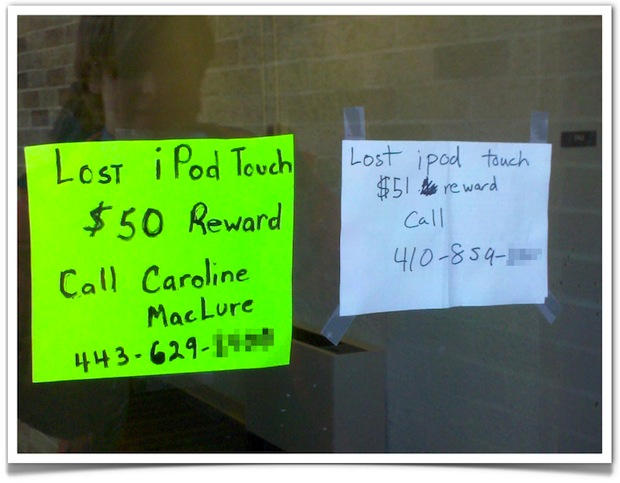 Lost iPod Touch
$50 Reward
Call Caroline
MacLure
443-629-
Lost ipod touch
$51 reward
Call
410-859-